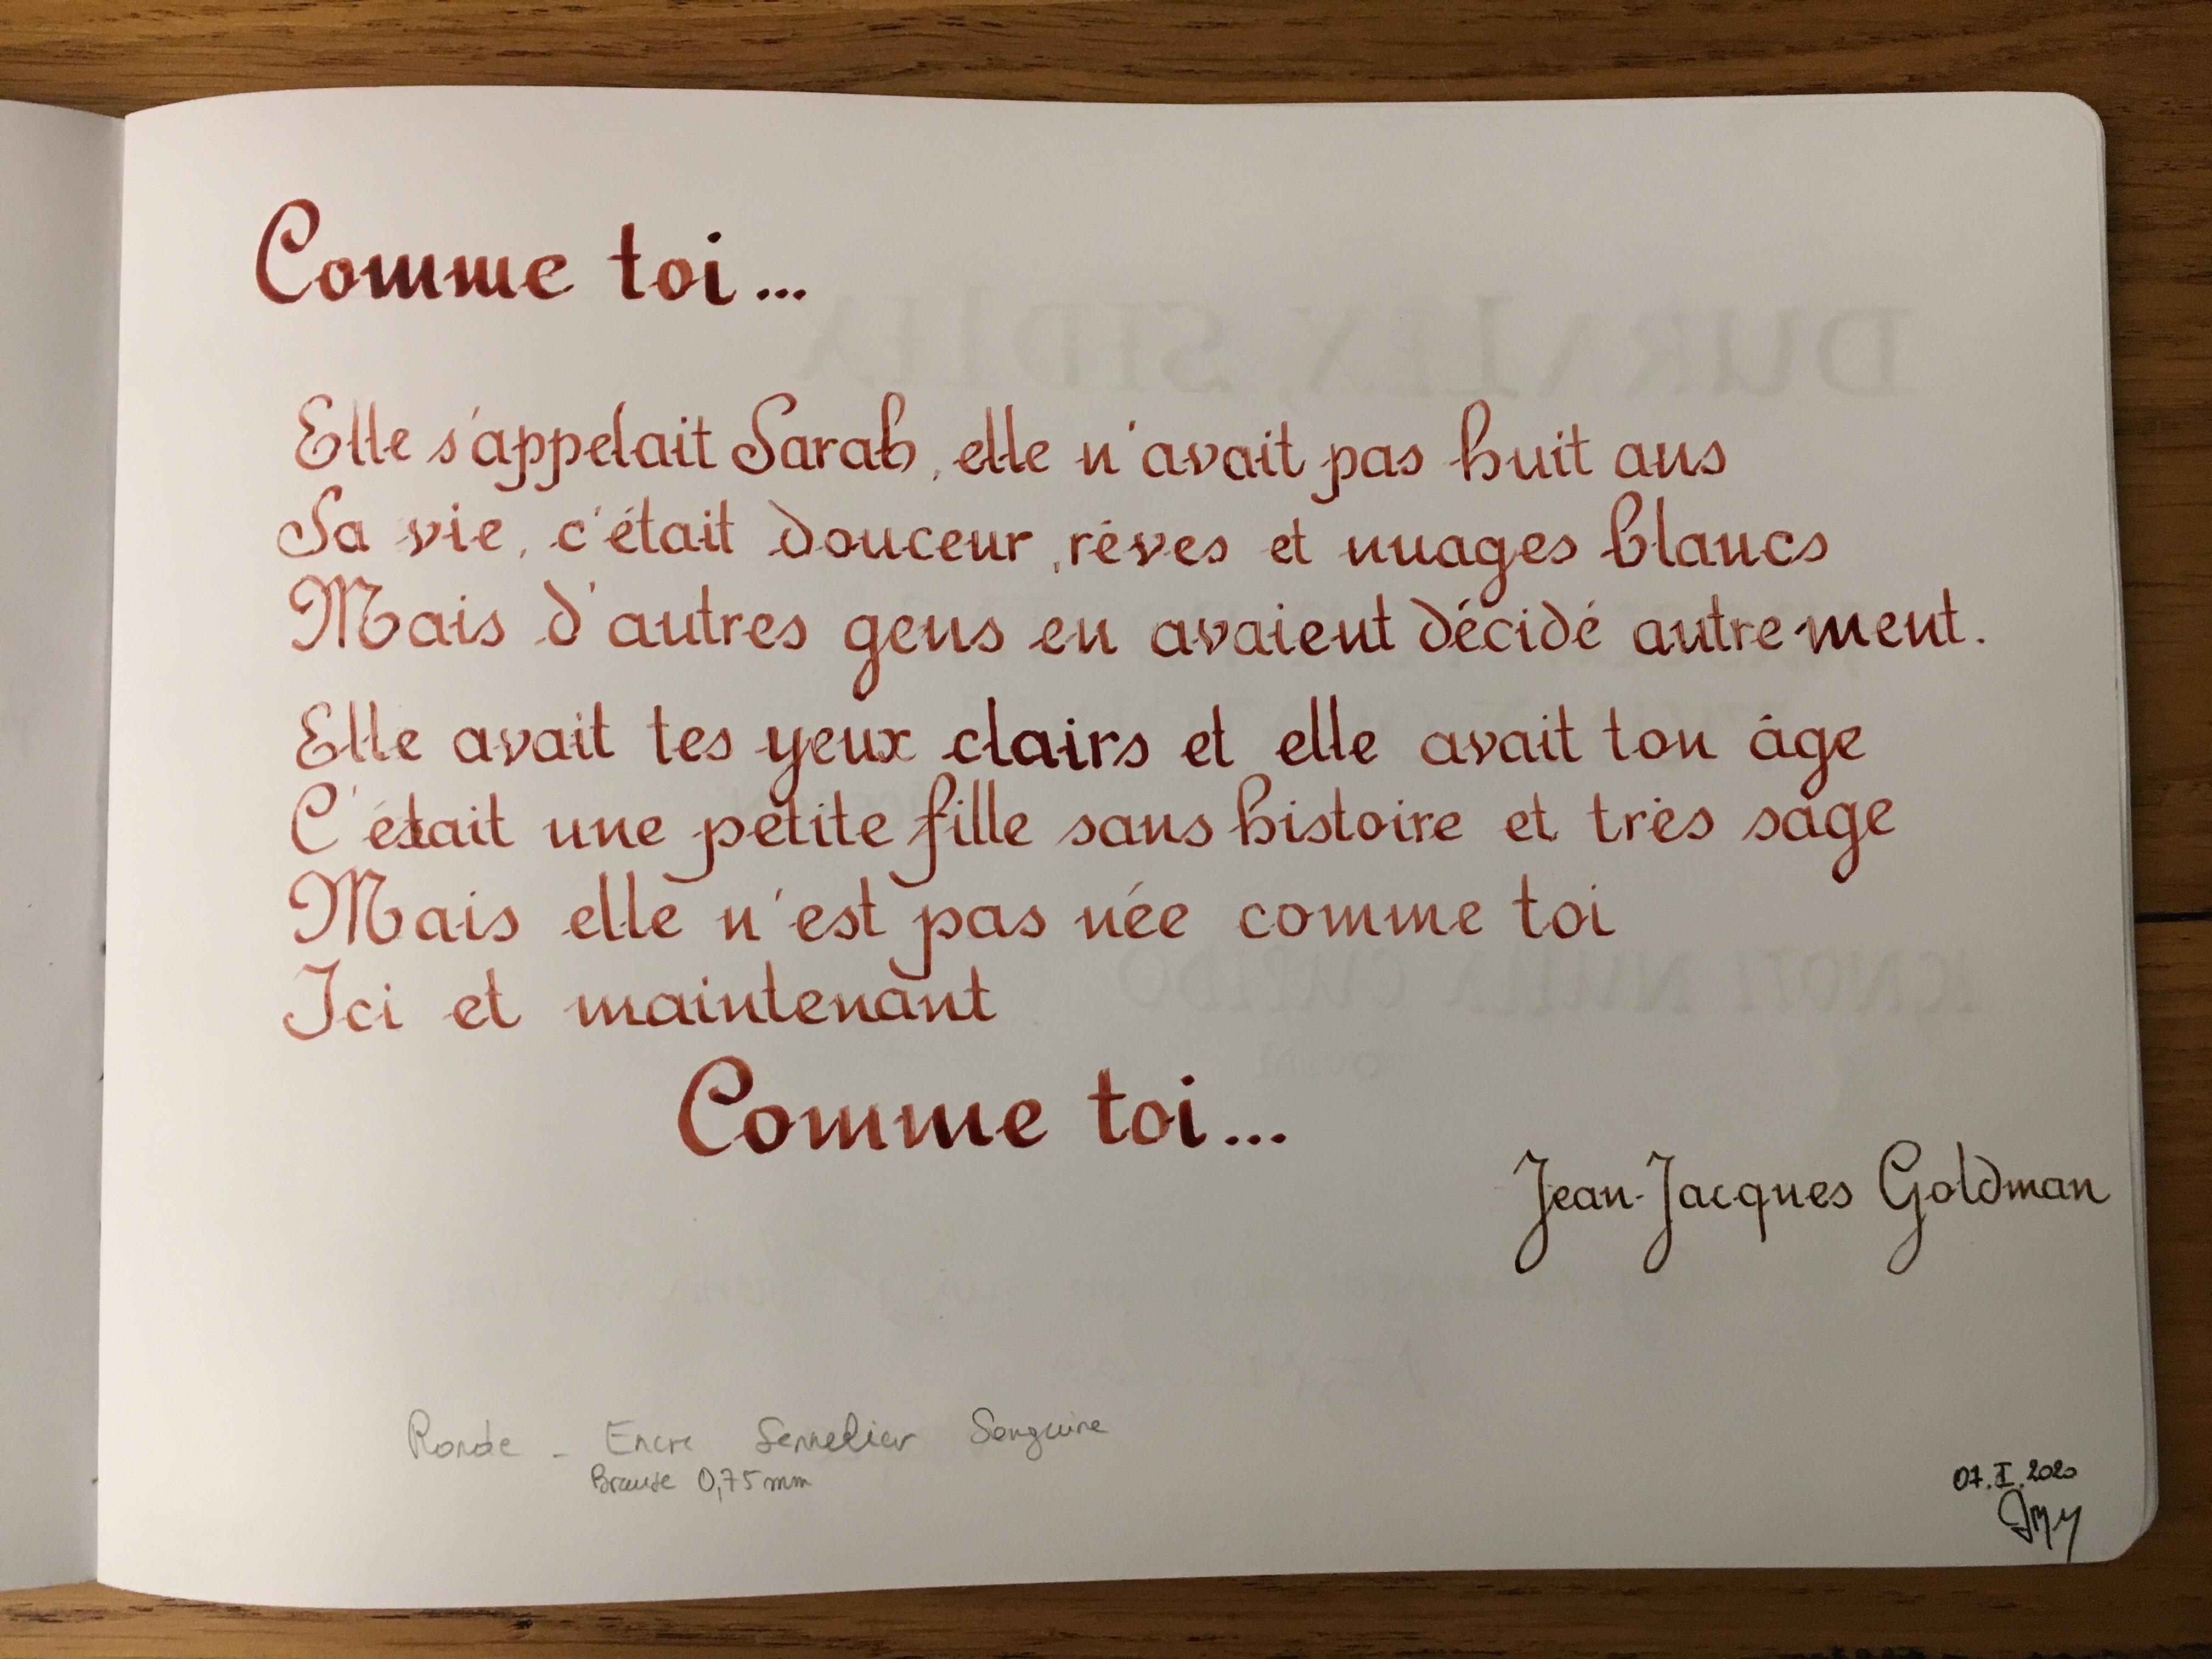 Comme toi...
Elle s'appelait Sarah, elle n'avait pas huit ans
Sa vie, c'était douceur, rêves et nuages blancs
Mais d'autres gens en avaient décidé autrement.
Elle avait tes yeux clairs et elle avait ton âge
C'était une petite fille sans histoire et très sage
Mais elle n'est pas née comme toi
Ici et maintenant
Comme toi...
Jean-Jacques Goldman
Ronde - Encre Sennelier Sanguine
Brause 0,75mm
07.I.2020